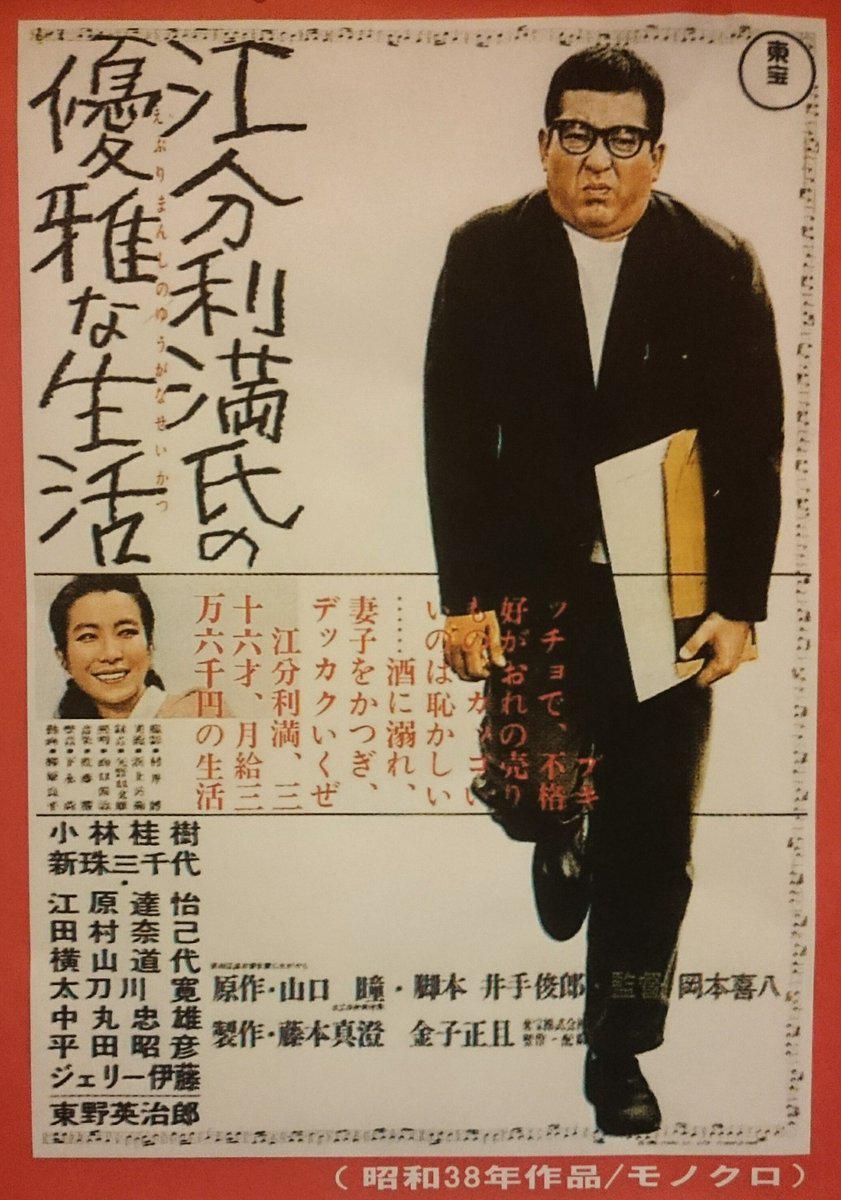 東宝
江分利満氏の
優雅な生活
えぶりまんしのゆうがなせいかつ
ブキ
ッチョで、不格
好がおれの売り
もの カッコい
いのは恥かしい
……酒に溺れ、
妻子をかつぎ、
デッカクいくぜ
江分利満、三
十六才、月給三
万六千円の生活
小林桂樹
新珠三千代
江原達怡
田村奈己
横山道代
太刀川寛
中丸忠雄
平田昭彦
ジェリー伊藤
東野英治郎
原作・山口 瞳・脚本 井手俊郎・監督 岡本喜八
製作・藤本真澄 金子正且
(昭和38年作品/モノクロ)